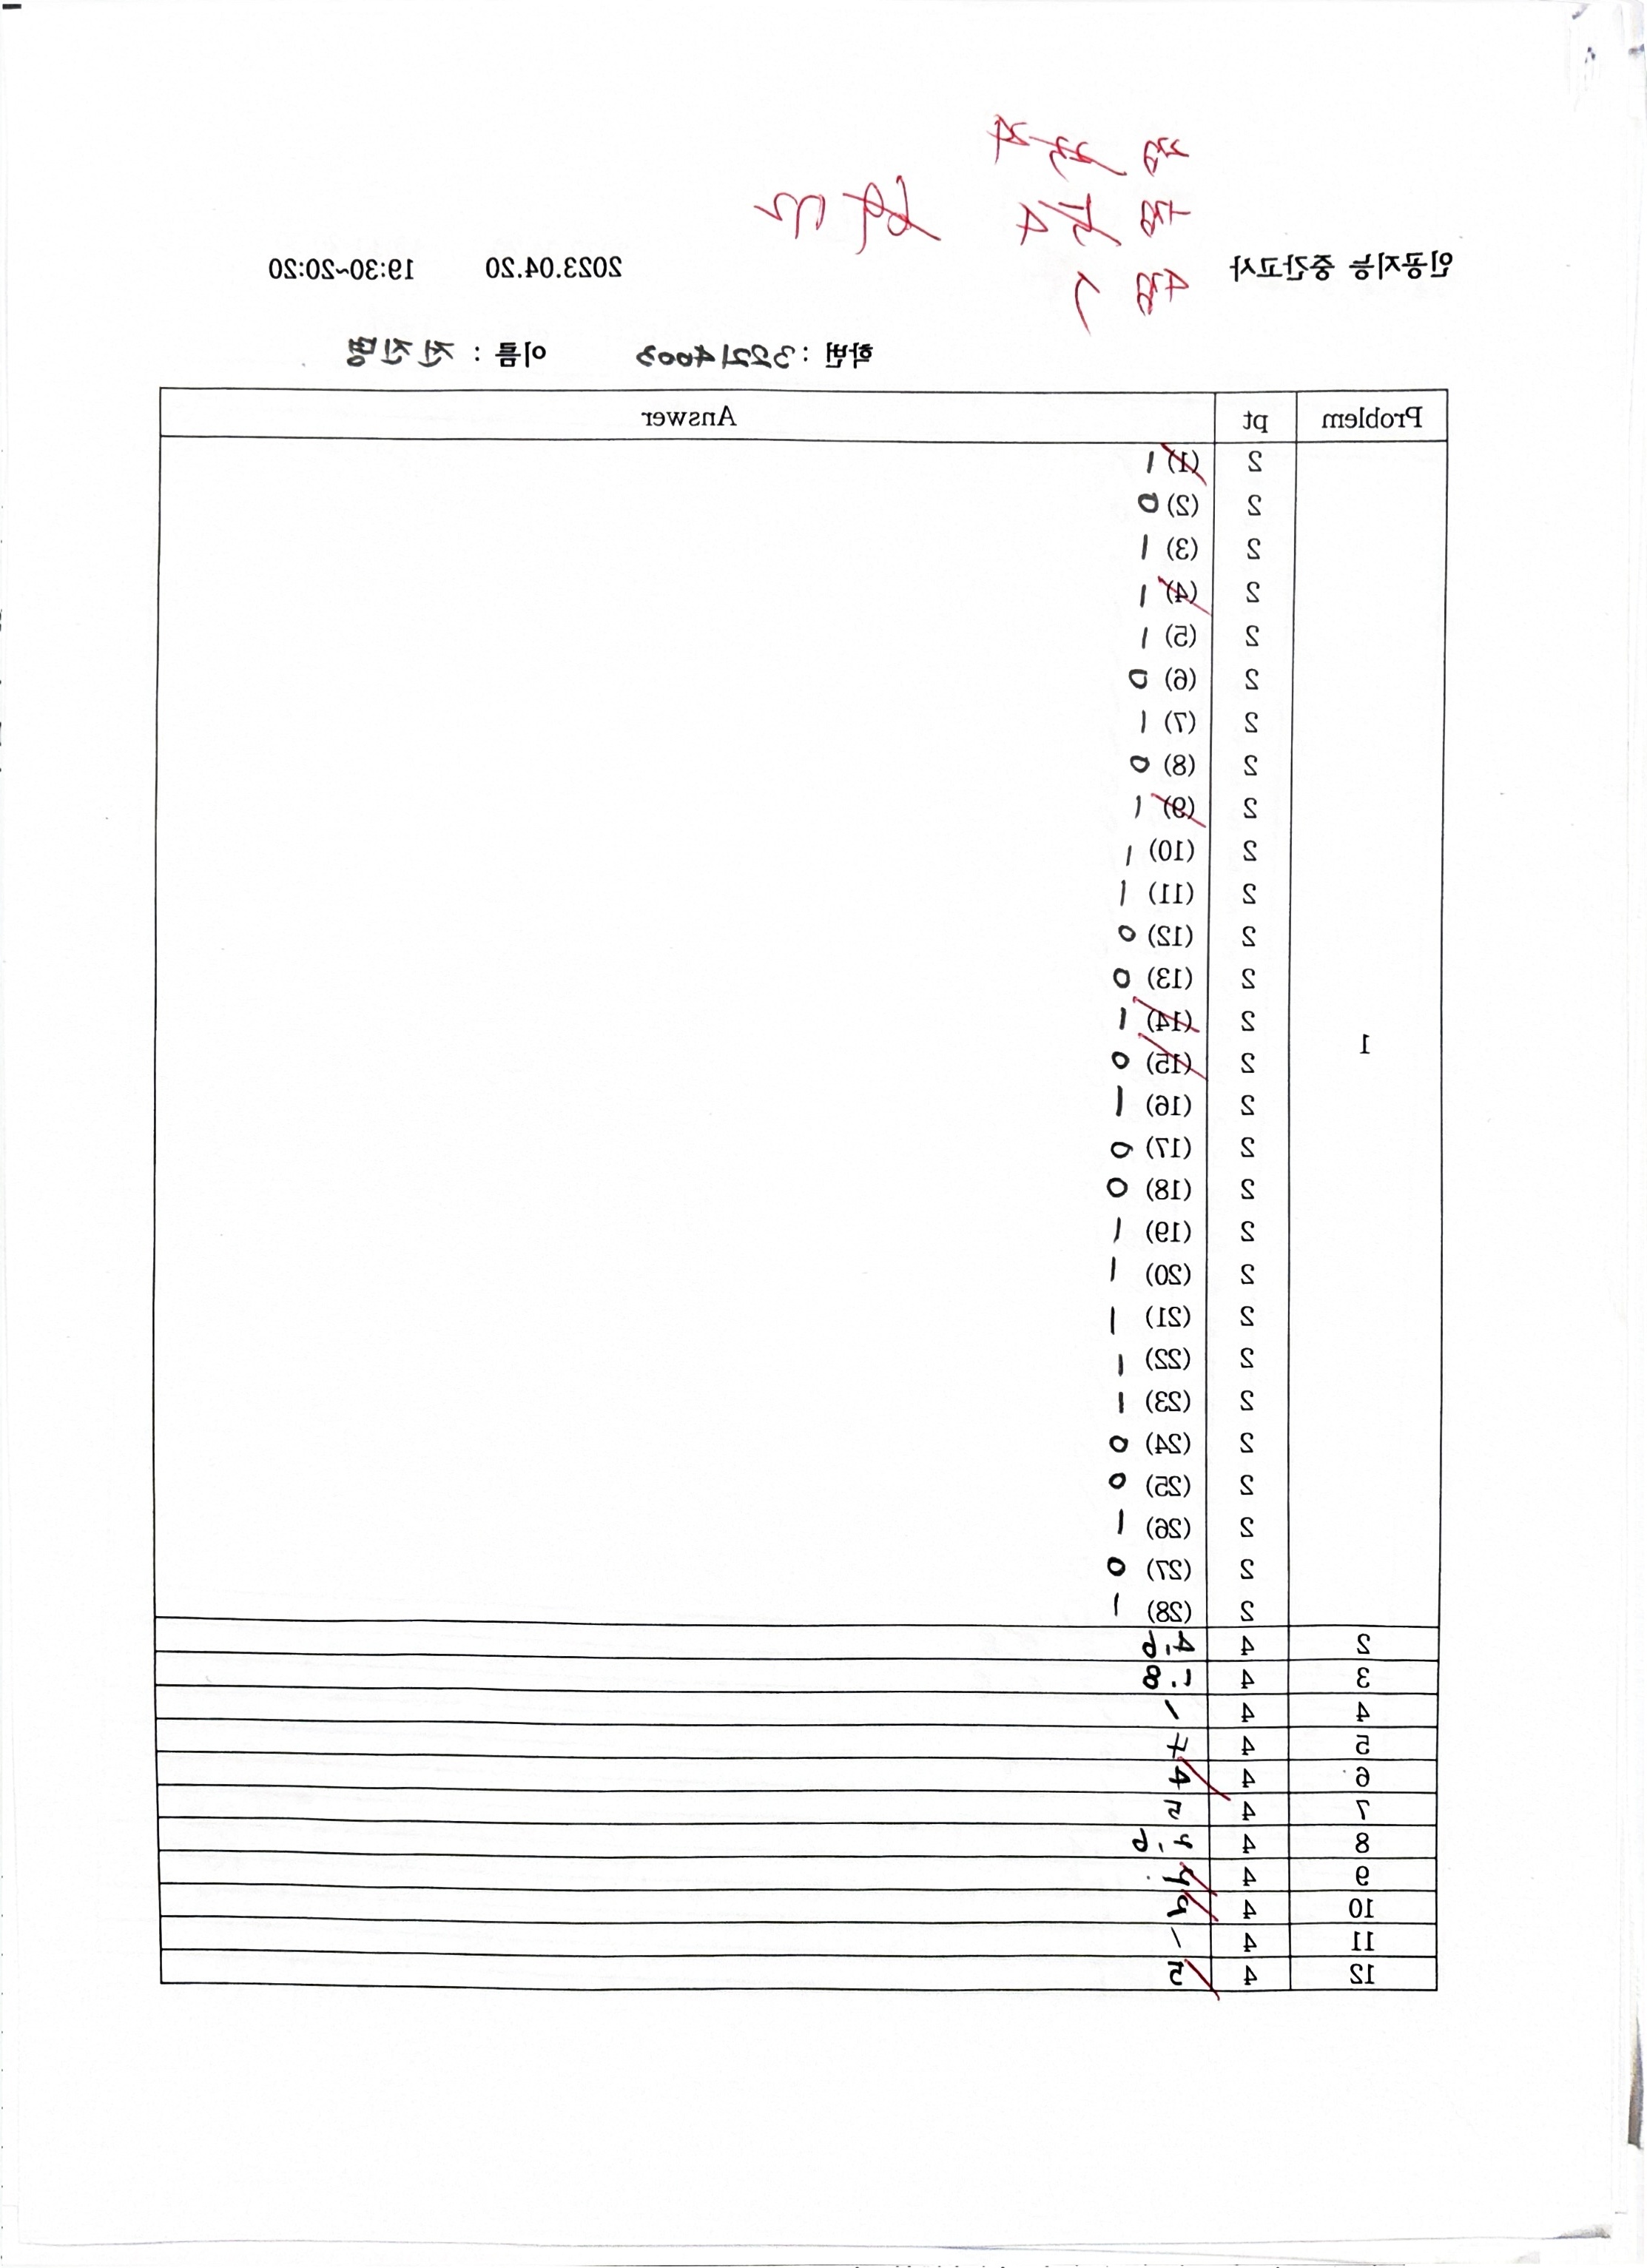 인공지능 중간고사 2023.04.20 19:30~20:20
학번 : 32214003 이름 : 전진명
Problem pt Answer
1
2 (1) 1
2 (2) 0
2 (3) 1
2 (4) 1
2 (5) 1
2 (6) 0
2 (7) 1
2 (8) 0
2 (9) 1
2 (10) 1
2 (11) 1
2 (12) 0
2 (13) 0
2 (14) 1
2 (15) 0
2 (16) 1
2 (17) 0
2 (18) 0
2 (19) 1
2 (20) 1
2 (21) 1
2 (22) 1
2 (23) 1
2 (24) 0
2 (25) 0
2 (26) 1
2 (27) 0
2 (28) 1
2 4
3 4
4 4 1
5 4
6 4 4
7 4
8 4
9 4
10 4
11 4 1
12 4